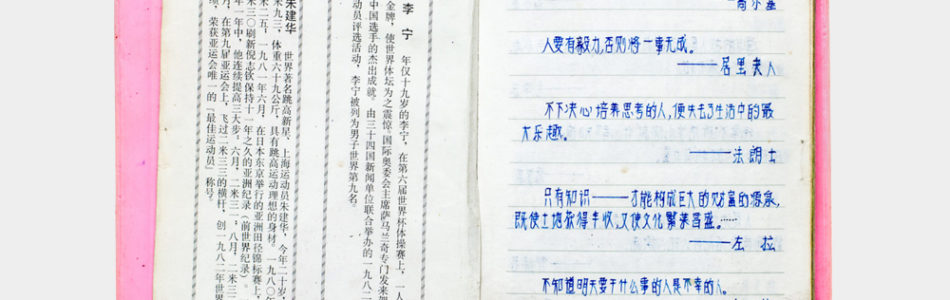 李 宁
年仅十九岁的李宁，在第六届世界杯体操赛上，一人
金牌，使世界体坛为之震惊，国际奥委会主席萨马兰奇专门发来
中国选手的杰出成就。由三十四国新闻单位联合举办的一九八二
动员评选活动，李宁被列为男子世界第九名。
朱建华
世界著名跳高新星、上海运动员朱建华，今年二十岁，
米九三，体重六十九公斤，具有跳高运动理想的身材。一九八〇年
米二五，一九八一年六月，在日本东京举行的亚洲田径锦标赛上，
米三〇刷新倪志钦保持十一年之久的亚洲纪录（前世界纪录）。
年一年中，他连续提高三大步。六月，二米三一，八月，二米三二
月，在第九届亚运会上，飞过二米三三的横杆，创一九八二年世界
绩，荣获亚运会唯一的「最佳运动员」称号。
——高尔基
人要有毅力，否则将一事无成。
——居里夫人
不下决心培养思考的人，便失去了生活中的最
大乐趣。
——法朗士
只有知识——才能构成巨大的财富的源泉，
既使土地获得丰收，又使文化繁荣昌盛……
——左 拉
不知道明天要干什么事的人是不幸的人。